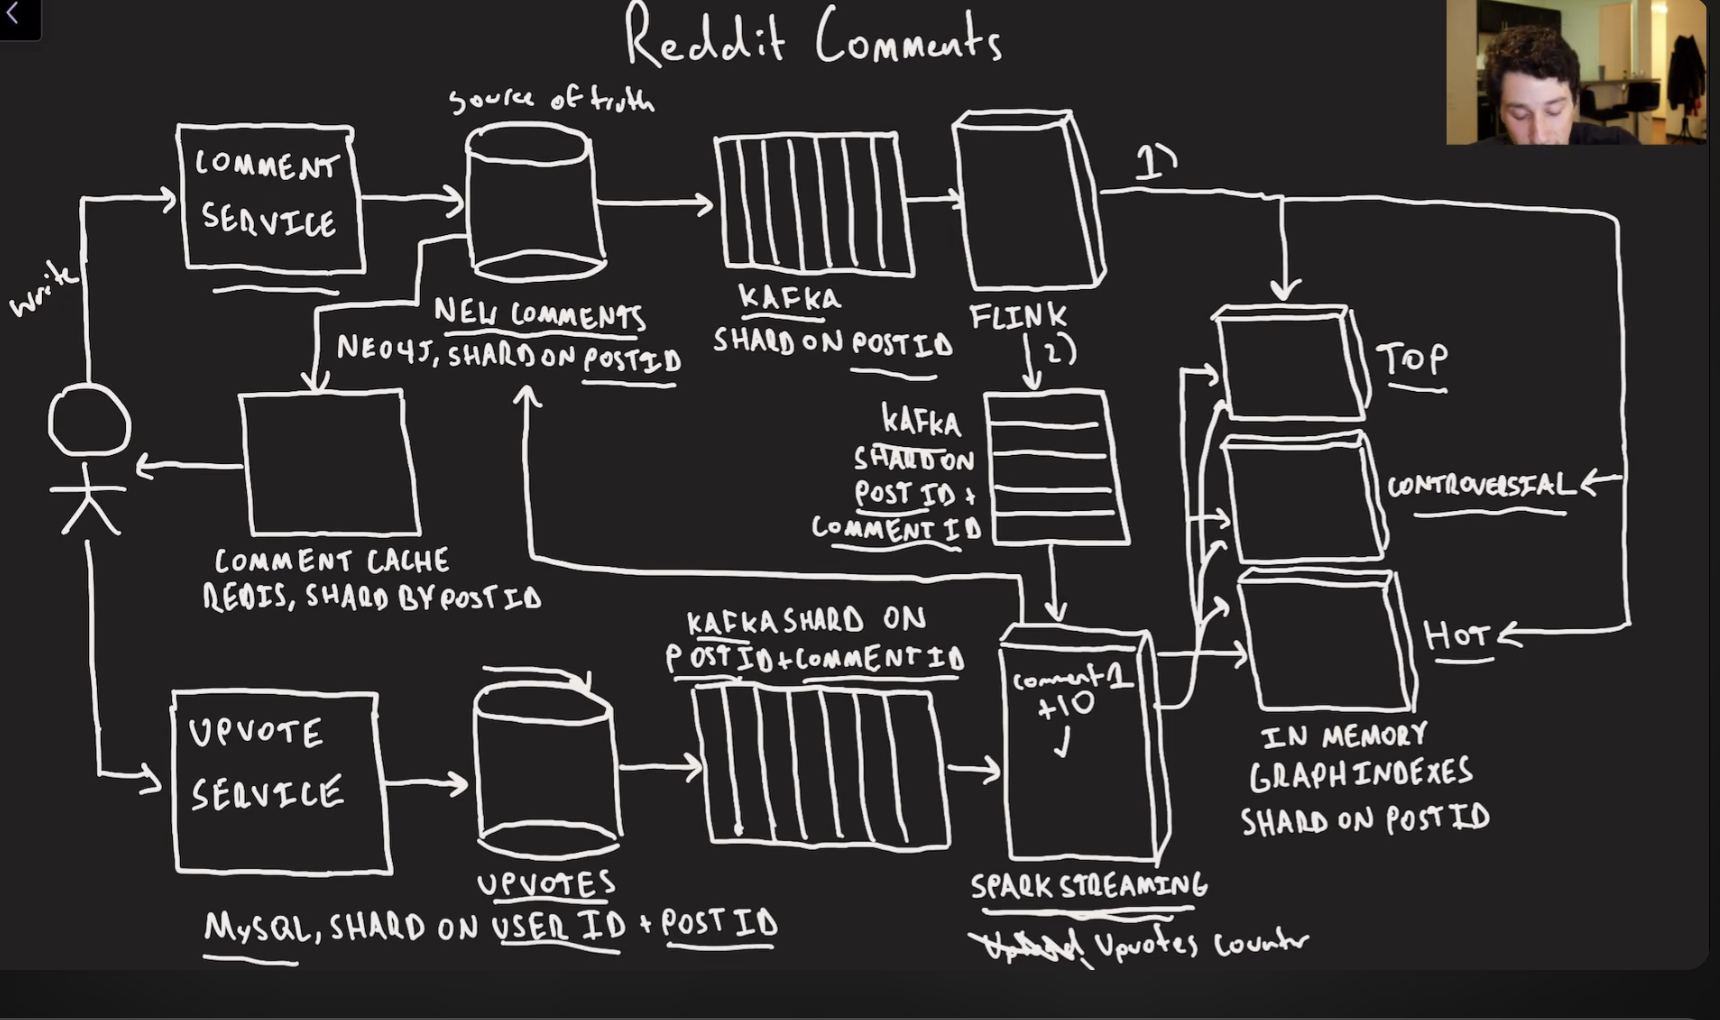 Reddit Comments
source of truth
COMMENT
SERVICE
write
NEW COMMENTS
NEO4J, SHARD ON POST ID
KAFKA
SHARD ON POST ID
FLINK
1)
2)
KAFKA
SHARD ON
POST ID +
COMMENT ID
TOP
CONTROVERSIAL
HOT
IN MEMORY
GRAPH INDEXES
SHARD ON POST ID
COMMENT CACHE
REDIS, SHARD BY POST ID
KAFKA SHARD ON
POST ID + COMMENT ID
comment 1
+10
UPVOTE
SERVICE
UPVOTES
MySQL, SHARD ON USER ID + POST ID
SPARK STREAMING
Upvotes counter